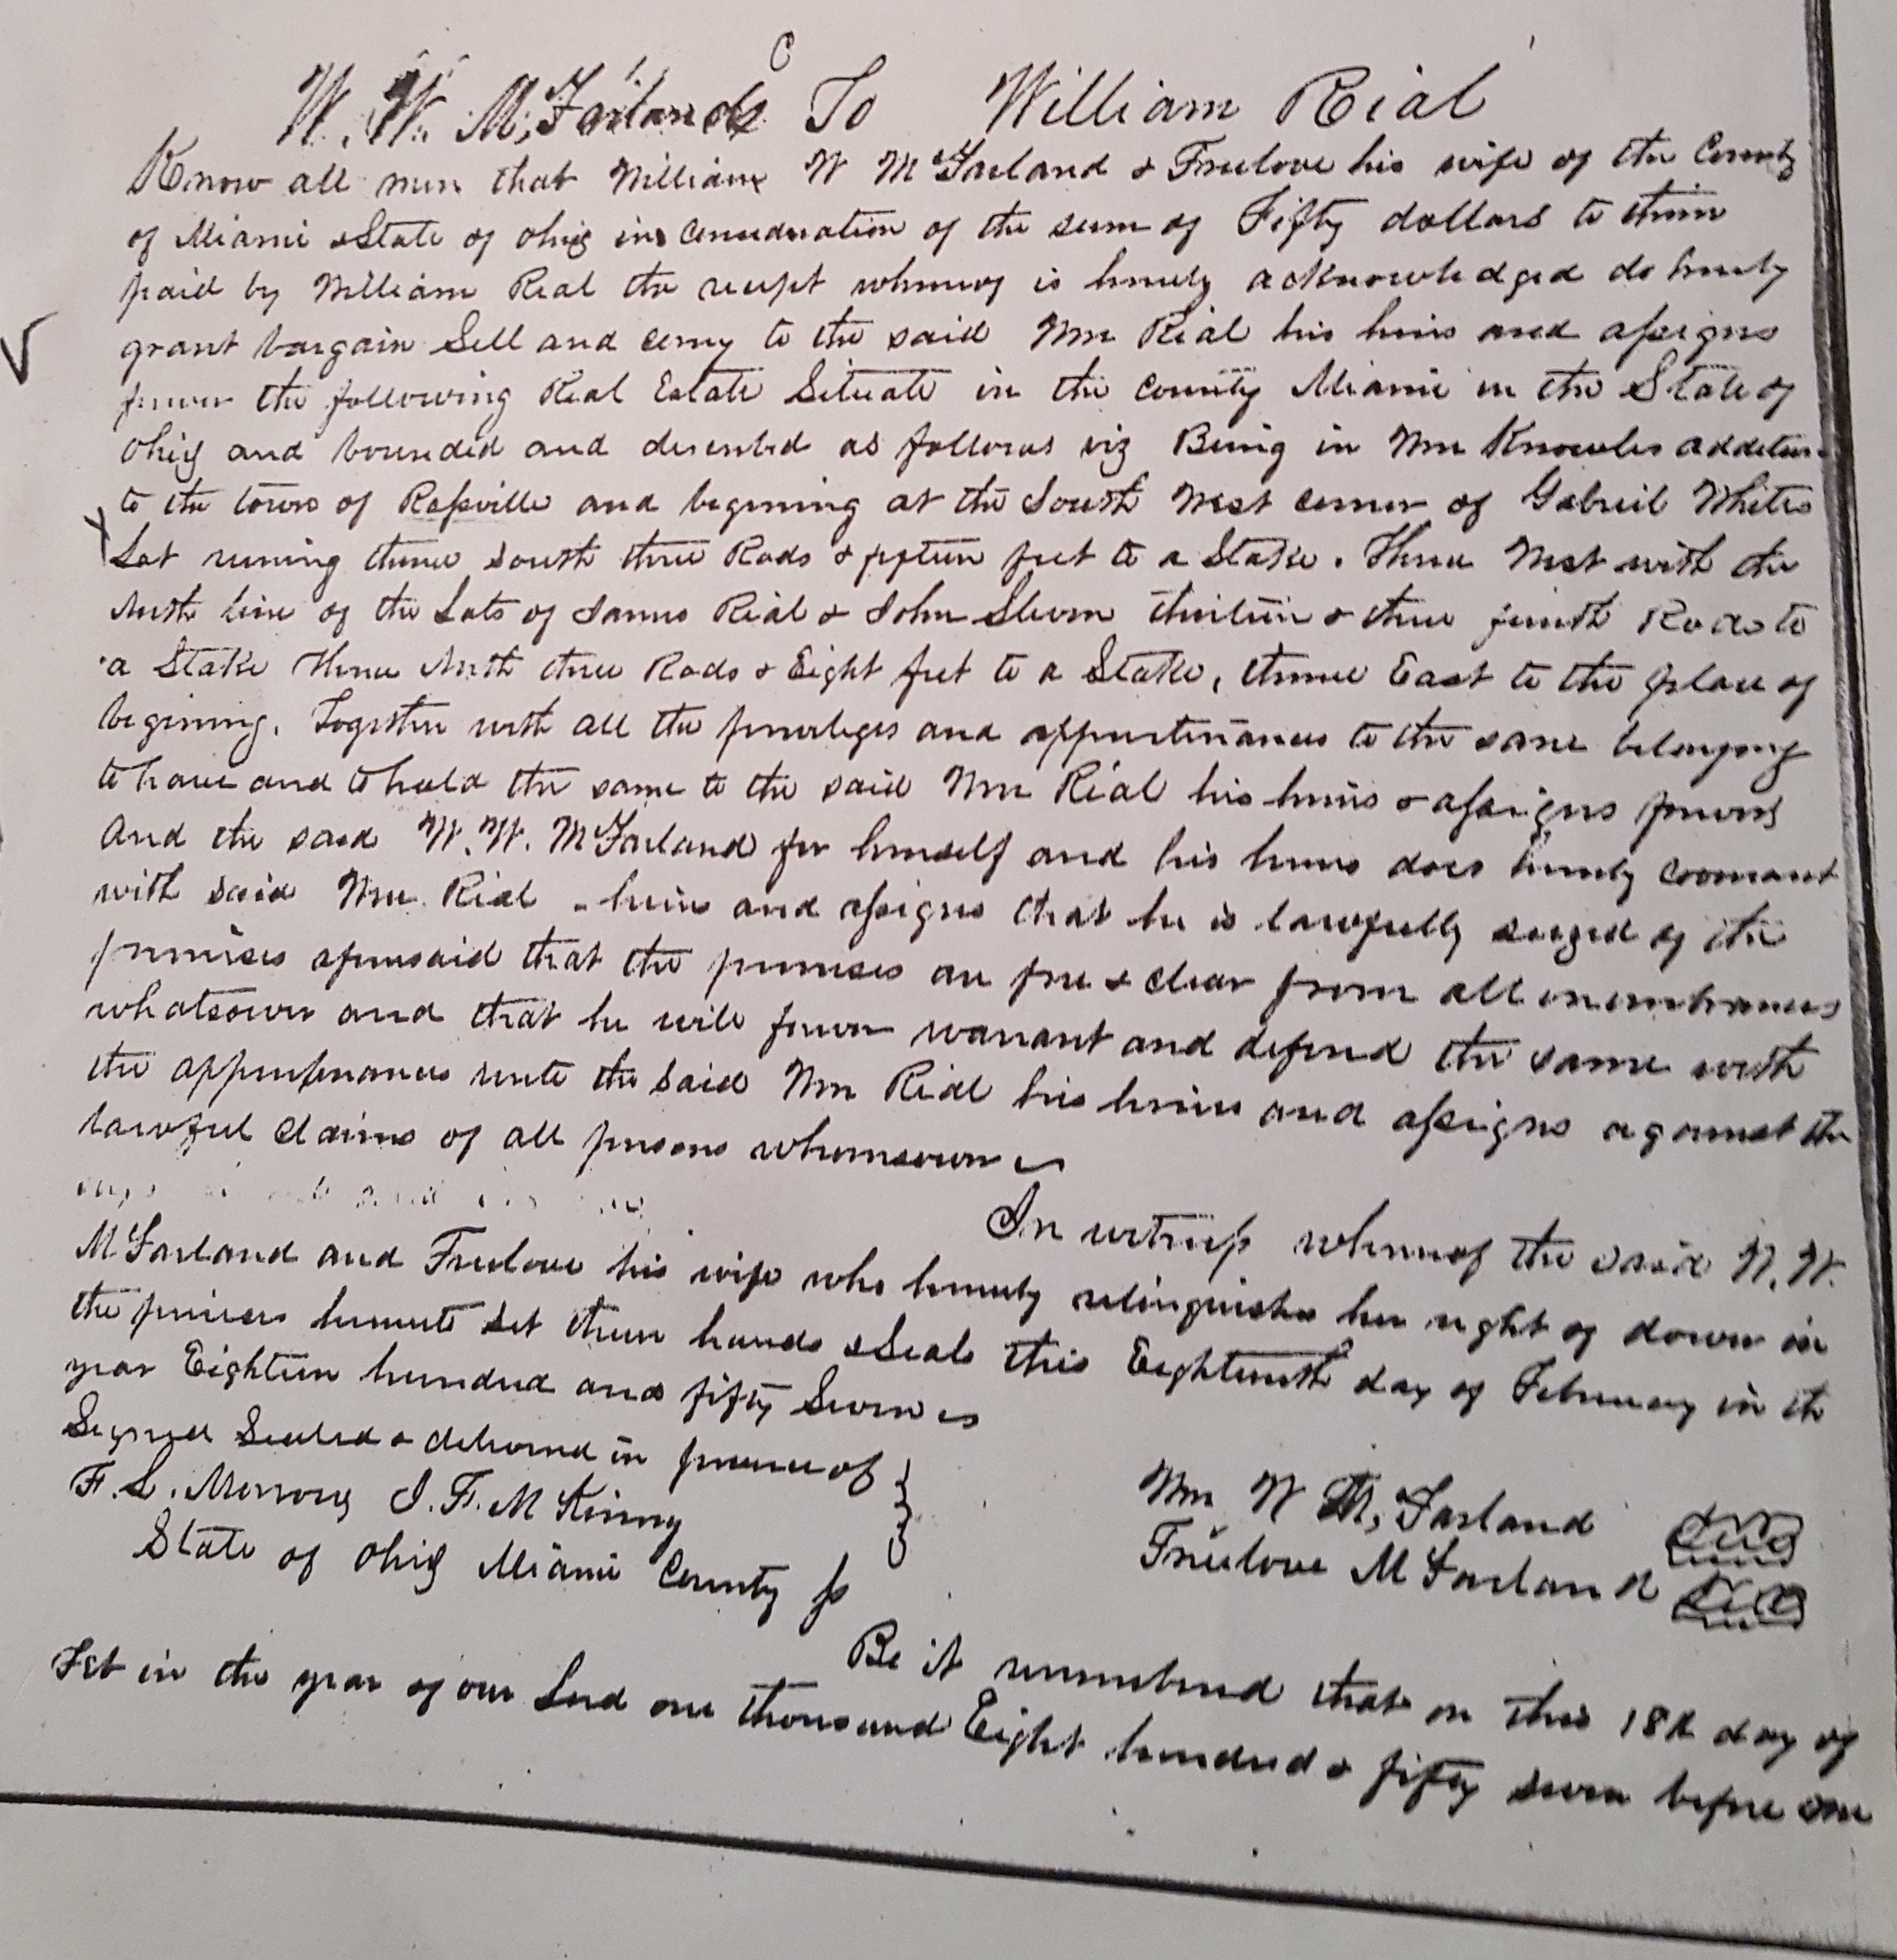 W. W. McFarland To William Rial
Know all men that William W McFarland & Freelove his wife of the County
of Miami & State of Ohio in consideration of the sum of Fifty dollars to them
paid by William Rial the receipt whereof is hereby acknowledged do hereby
grant bargain Sell and convey to the said Wm Rial his heirs and assigns
forever the following Real Estate Situate in the County Miami in the State of
Ohio and bounded and described as follows viz Being in Wm Knowles addition
to the town of Rossville and begining at the South West corner of Gabriel Whites
Lot runing thence south three Rods & fifteen feet to a Stake. Thence West with the
North line of the Lots of James Rial & John Sleven thirteen & three fourth Rods to
a Stake Thence North three Rods & Eight feet to a Stake, thence East to the place of
begining. Together with all the priveleges and appurtenances to the same belonging
to have and to hold the same to the said Wm Rial his heirs & assigns forever
And the said W. W. McFarland for himself and his heirs does hereby covenant
with said Wm Rial heirs and assigns that he is lawfully seized of the
premises aforesaid that the premises are free & clear from all incumbrances
whatsoever and that he will forever warrant and defend the same with
the appurtenances unto the said Wm Rial his heirs and assigns against the
lawful claims of all persons whomsoever
In witness whereof the said W. W.
McFarland and Freelove his wife who hereby relinquishes her right of dower in
the premises hereunto set their hands & Seals this Eighteenth day of February in the
year Eighteen hundred and fifty Seven
Signed Sealed & delivered in presence of
F. L. Morrow J. F. McKinny
Wm W McFarland Seal
Freelove McFarland Seal
State of Ohio Miami County ss
Be it remembered that on this 18th day of
Feb in the year of our Lord one thousand Eight hundred & fifty seven before me